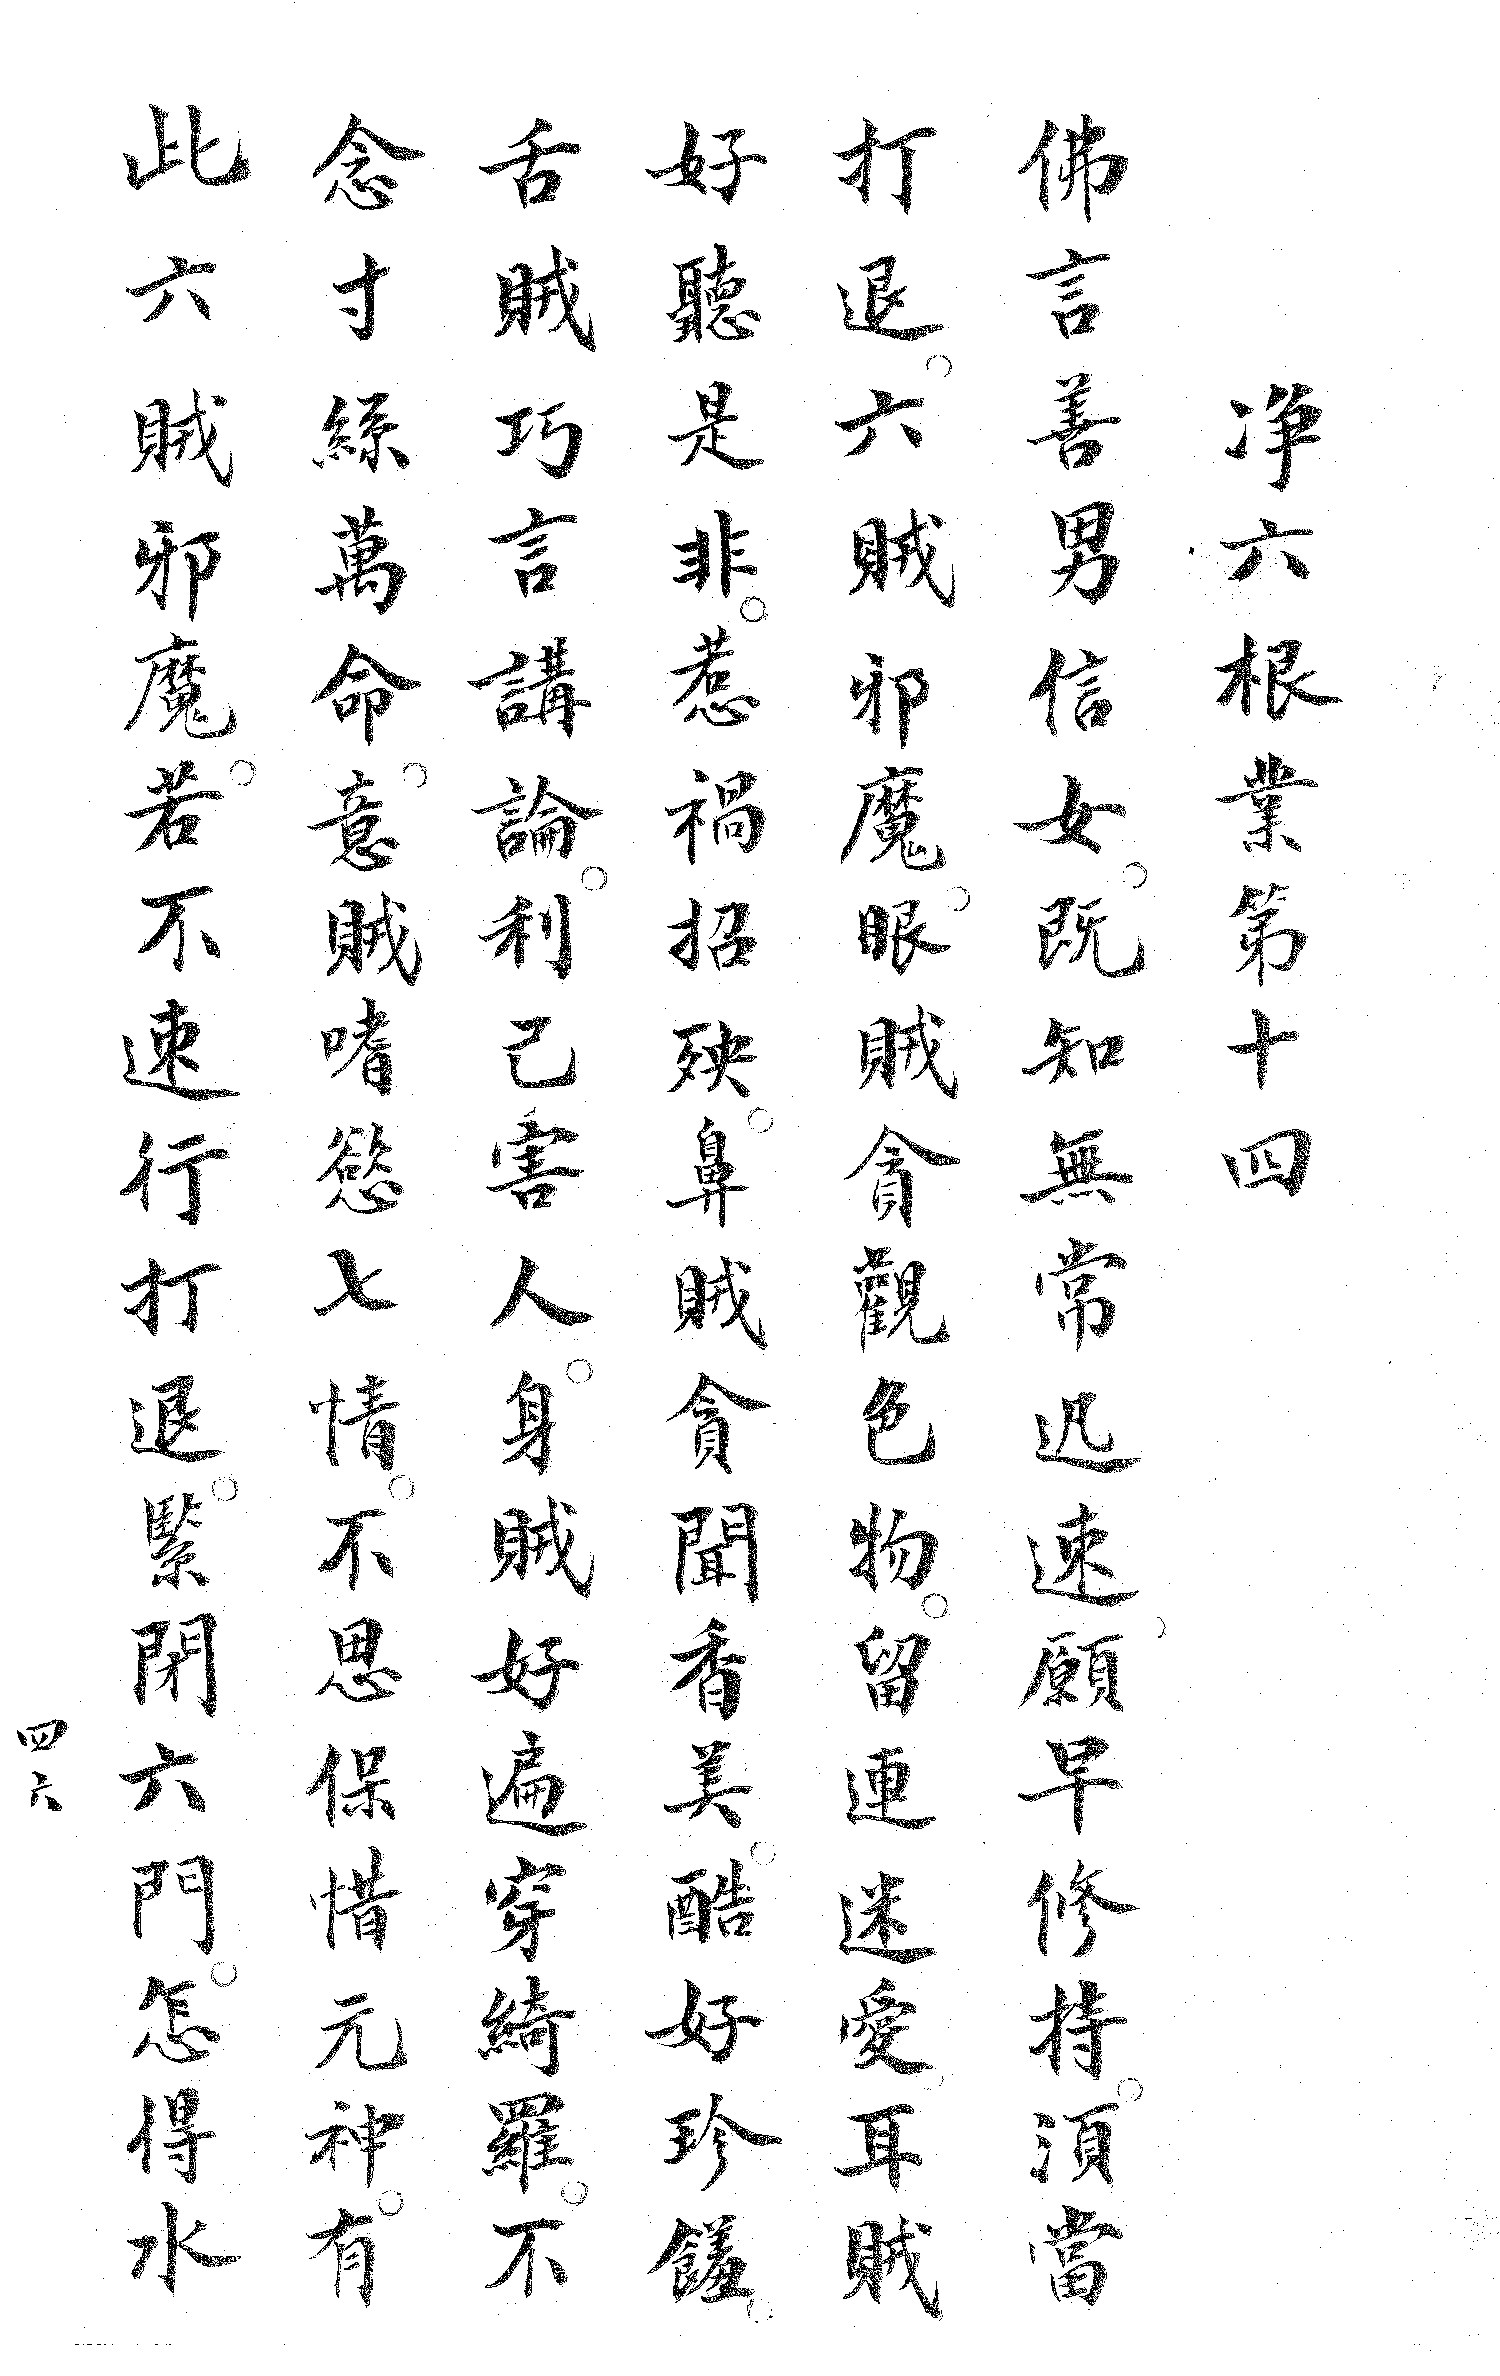 净六根業第十四
佛言善男信女○既知無常迅速○願早修持○須當
打退○六賊邪魔○眼賊貪觀色物○留連迷愛○耳賊
好聽是非○惹禍招殃○鼻賊貪聞香美○酷好珍饈○
舌賊巧言講論○利己害人○身賊好遍穿綺羅○不
念寸絲萬命○意賊嗜慾七情○不思保惜元神○有
此六賊邪魔○若不速行打退○緊閉六門○怎得水
四六